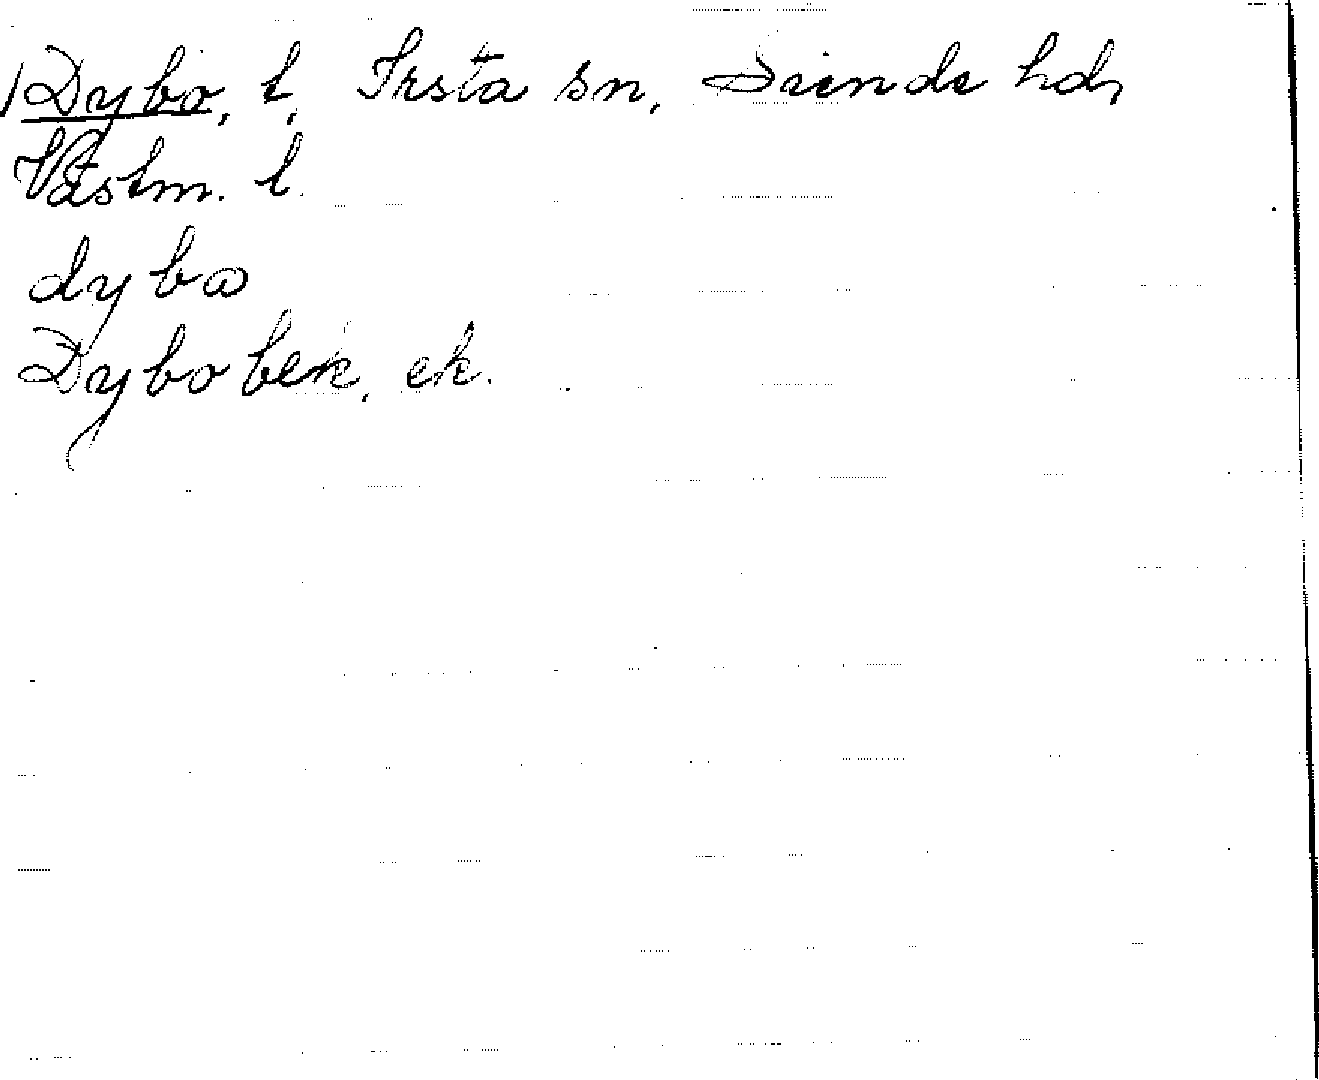 Dybo, t, Irsta sn, Siende hdr
Västm. l.
dybω
Dybo bek, ek.